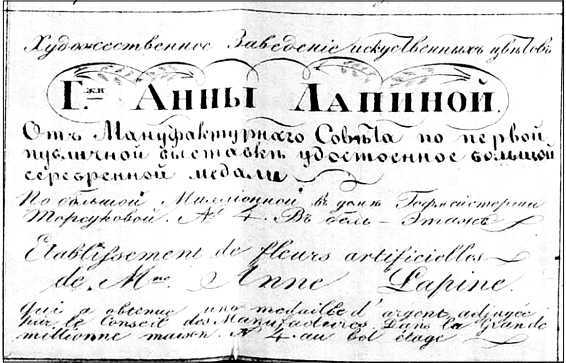 Художественное Заведеніе искуственныхъ цвѣтовъ
Г.жи АННЫ ЛАПИНОЙ.
Отъ Мануфактурнаго Совѣта по первой
публичной выставкѣ удостоенное большой
серебренной медали
По большой Миллионной въ домѣ Гофмейстерши
Торсуковой № 4. Въ бель-Этажѣ
Etablissement de fleurs artificielles
de Mme Anne Lapine.
Qui a obtenue une medaille d'argent adjugée
par le Conseil des Manufactures. Dans la Grande
millionne maison № 4 au bel étage